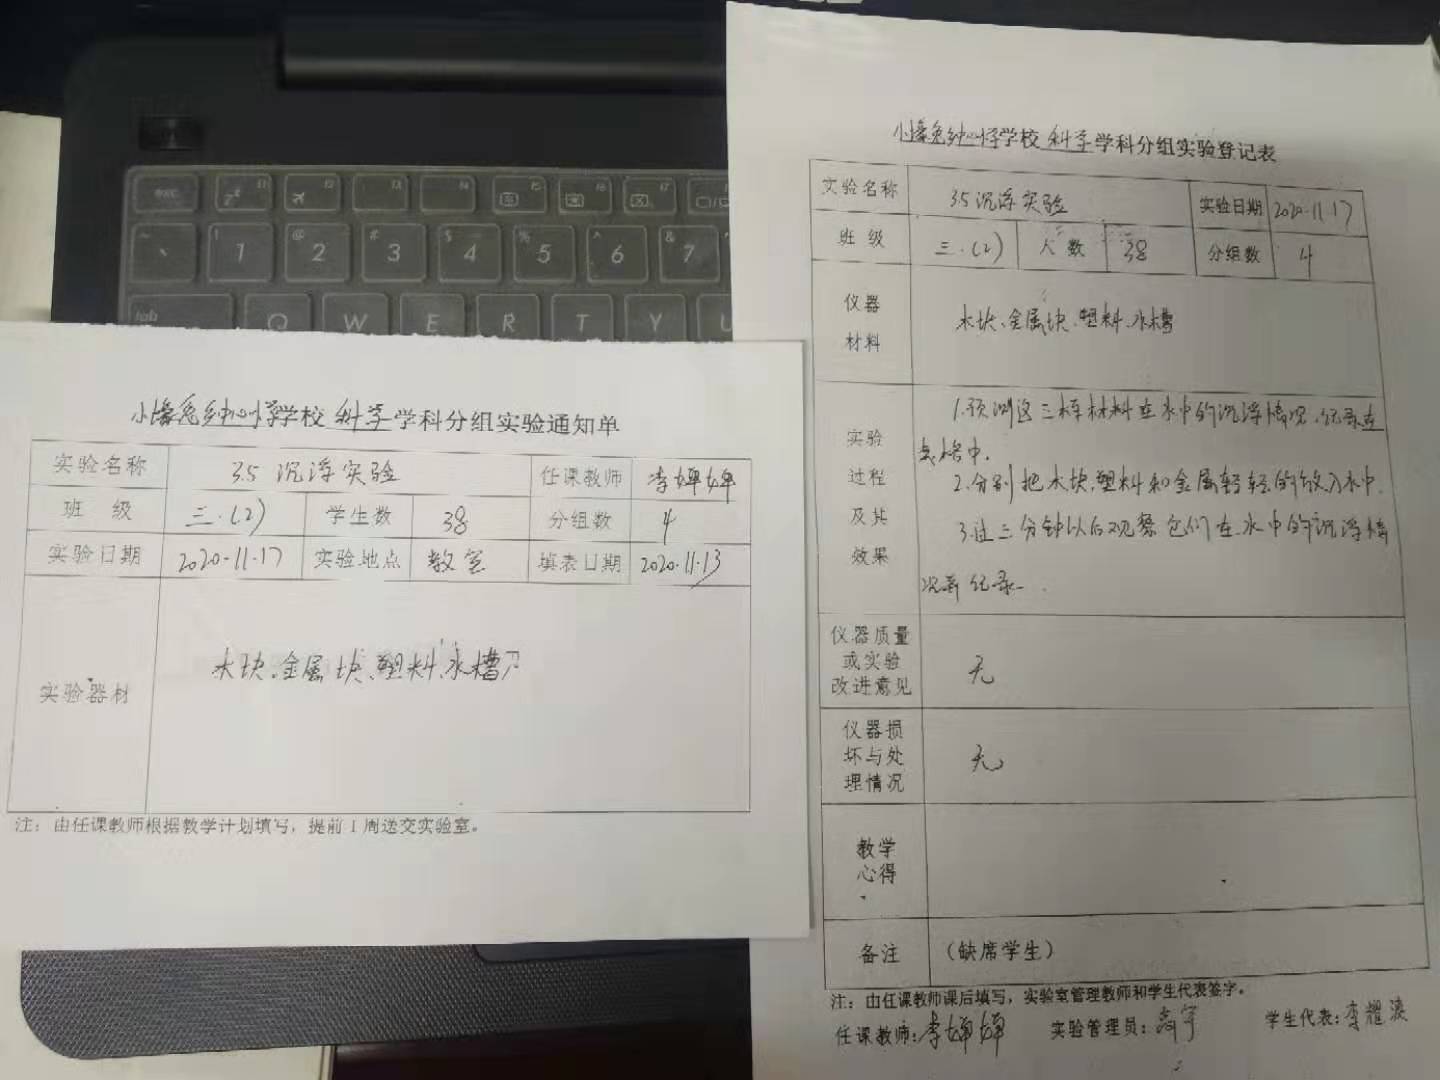 esc
1 2 3 4 5 6 7
tab Q W E R T Y U
小壕兔中心小学学校 科学 学科分组实验通知单
实验名称 3.5 沉浮实验 任课教师 李婵婵
班 级 三.(2) 学生数 38 分组数 4
实验日期 2020.11.17 实验地点 教室 填表日期 2020.11.13
实验器材 木块、金属块、塑料、水槽
注：由任课教师根据教学计划填写，提前1周送交实验室。
小壕兔中心小学学校 科学 学科分组实验登记表
实验名称 3.5 沉浮实验 实验日期 2020.11.17
班 级 三.(2) 人 数 38 分组数 4
仪器
材料
木块、金属块、塑料、水槽
实验
过程
及其
效果
1.预测这三样材料在水中的沉浮情况，纪录在
表格中。
2.分别把木块、塑料和金属轻轻的放入水中。
3.过三分钟以后观察它们在水中的沉浮情
况并纪录。
仪器质量
或实验
改进意见
无
仪器损
坏与处
理情况
无
教学
心得
备注 （缺席学生）
注：由任课教师课后填写，实验室管理教师和学生代表签字。
任课教师：李婵婵 实验管理员：高宇 学生代表：李耀